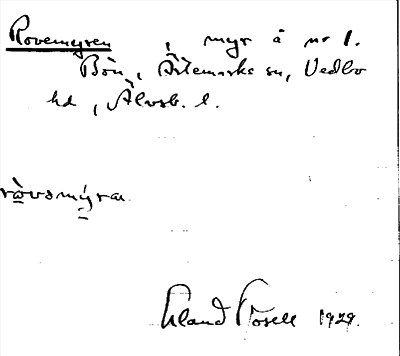 Rovemyren, myr å nr 1.
Bön, Ärtemarks sn, Vedbo
hd, Älvsb. l.
rövamýran
Erland Rosell 1929.